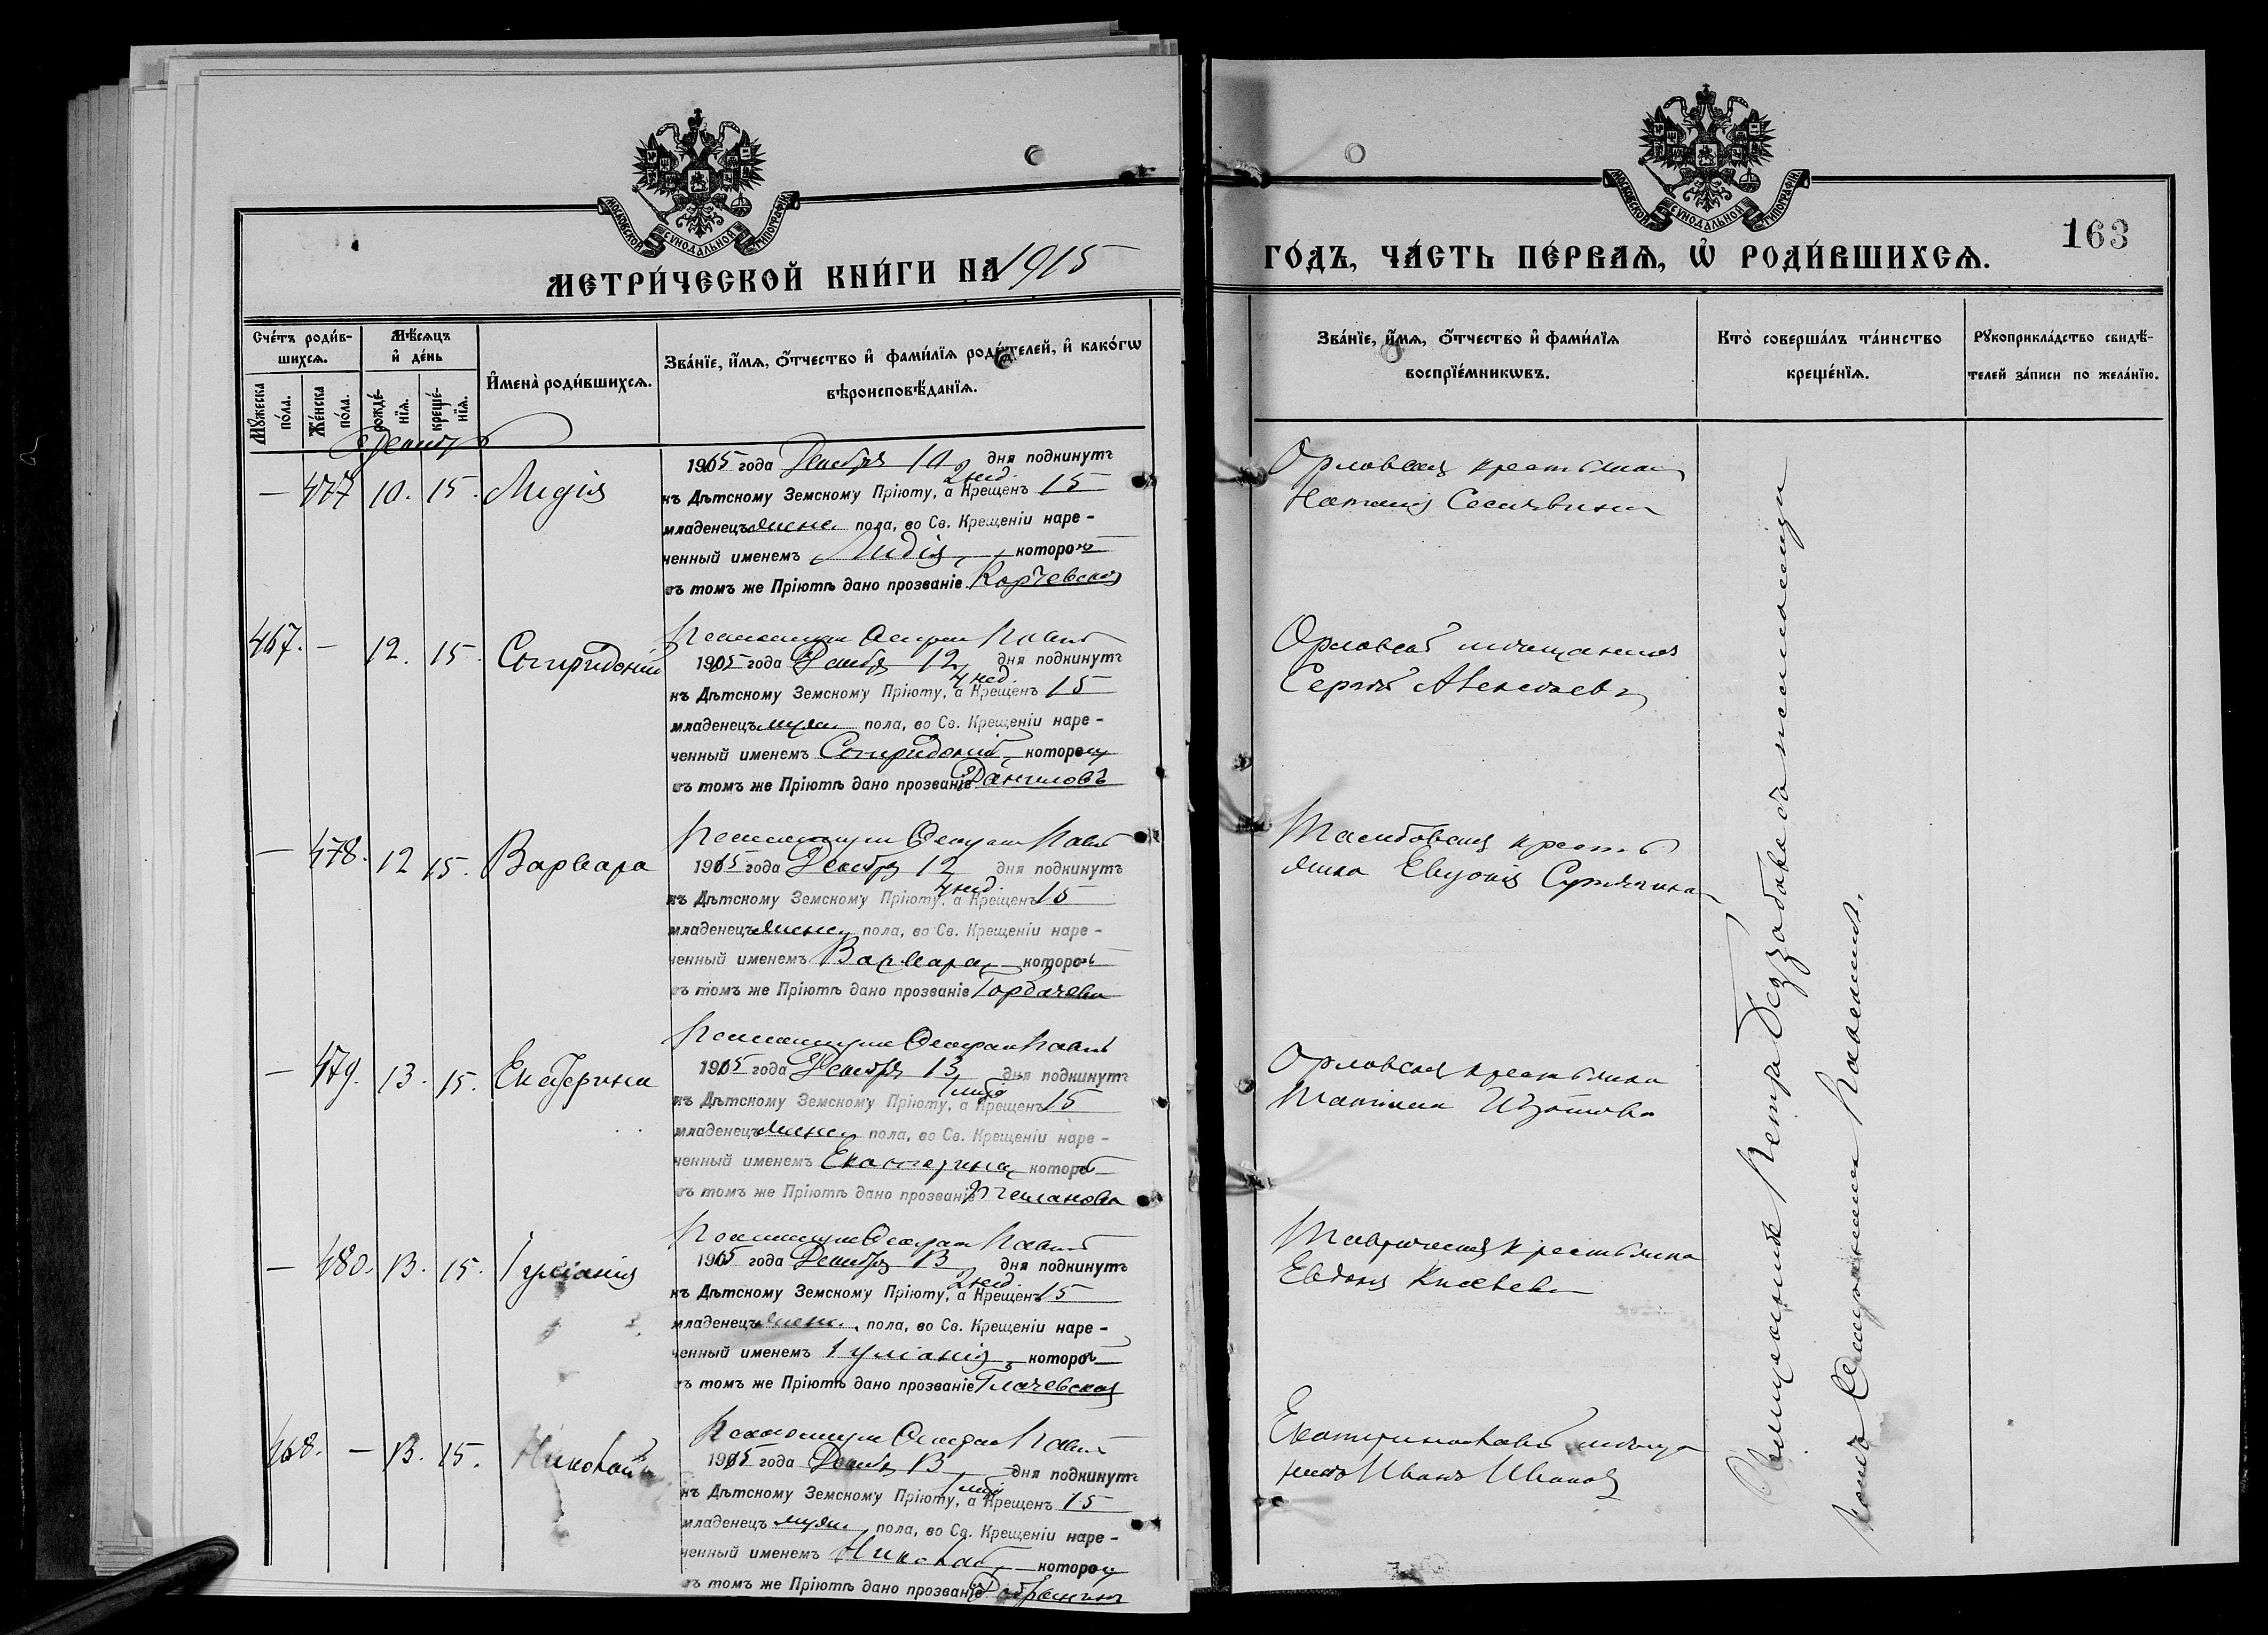 МОСКОВСКОЙ СѴНОДАЛЬНОЙ ТИПОГРАФІИ
МЕТРИ́ЧЕСКОЙ КНИ́ГИ НА 1915
Сче́тъ роди́в-
шихсѧ.
Мꙋ́жеска по́ла.
Же́нска по́ла.
Мѣ́сѧцъ
и҆ де́нь
рожде́-
нїѧ.
креще́-
нїѧ.
И҆мена̀ роди́вшихсѧ.
Зва́нїе, и҆́мѧ, ѻ҆́тчество и҆ фами́лїѧ роди́телей, и҆ како́гѡ
вѣроисповѣ́данїѧ.
Декабрь
— 477 10. 15. Лидія
1915 года Декабря 10 дня подкинутъ
2 нед.
къ Дѣтскому Земскому Пріюту, а Крещенъ 15
младенецъ женс. пола, во Св. Крещеніи наре-
ченный именемъ Лидія, которой
въ томъ же Пріютѣ дано прозваніе Корчевская
467. — 12. 15. Спиридоній
1915 года Декабря 12 дня подкинутъ
4 нед.
къ Дѣтскому Земскому Пріюту, а Крещенъ 15
младенецъ муж. пола, во Св. Крещеніи наре-
ченный именемъ Спиридоній, которому
въ томъ же Пріютѣ дано прозваніе Даниловъ
— 478. 12 15. Варвара
1915 года Декабря 12 дня подкинутъ
4 нед.
къ Дѣтскому Земскому Пріюту, а Крещенъ 15
младенецъ женс. пола, во Св. Крещеніи наре-
ченный именемъ Варвара, которой
въ томъ же Пріютѣ дано прозваніе Горбачева
— 479. 13. 15. Екатерина
1915 года Декабря 13 дня подкинутъ
къ Дѣтскому Земскому Пріюту, а Крещенъ 15
младенецъ женс. пола, во Св. Крещеніи наре-
ченный именемъ Екатерина, которой
въ томъ же Пріютѣ дано прозваніе
— 480. 13. 15. Іуліанія
1915 года Декабря 13 дня подкинутъ
2 нед.
къ Дѣтскому Земскому Пріюту, а Крещенъ 15
младенецъ женс. пола, во Св. Крещеніи наре-
ченный именемъ Іуліанія, которой
въ томъ же Пріютѣ дано прозваніе
468. — 13. 15. Николай
1915 года Декабря 13 дня подкинутъ
къ Дѣтскому Земскому Пріюту, а Крещенъ 15
младенецъ муж. пола, во Св. Крещеніи наре-
ченный именемъ Николай, которому
въ томъ же Пріютѣ дано прозваніе
МОСКОВСКОЙ СѴНОДАЛЬНОЙ ТИПОГРАФІИ
163
ГО́ДЪ, ЧА́СТЬ ПЕ́РВАѦ, Ѡ҆ РОДИ́ВШИХСѦ.
Зва́нїе, и҆́мѧ, ѻ҆́тчество и҆ фами́лїѧ
воспрїе́мникѡвъ.
Кто̀ соверша́лъ та́инство
креще́нїѧ.
Рꙋкоприкла́дство свидѣ́-
телей за́писи по жела́нїю.
Орловская крестьянка
Наталія
Орловскій мѣщанинъ
Сергѣй Алексѣевъ
Тамбовская кресть
янка Евдокія
Орловская крестьянка
Татіана Изотова
Таврическая крестьянка
Евдокія Киселева
Екатеринославскій мѣща
нинъ Иванъ Ивановъ
Священникъ Петръ съ псаломщи
комъ